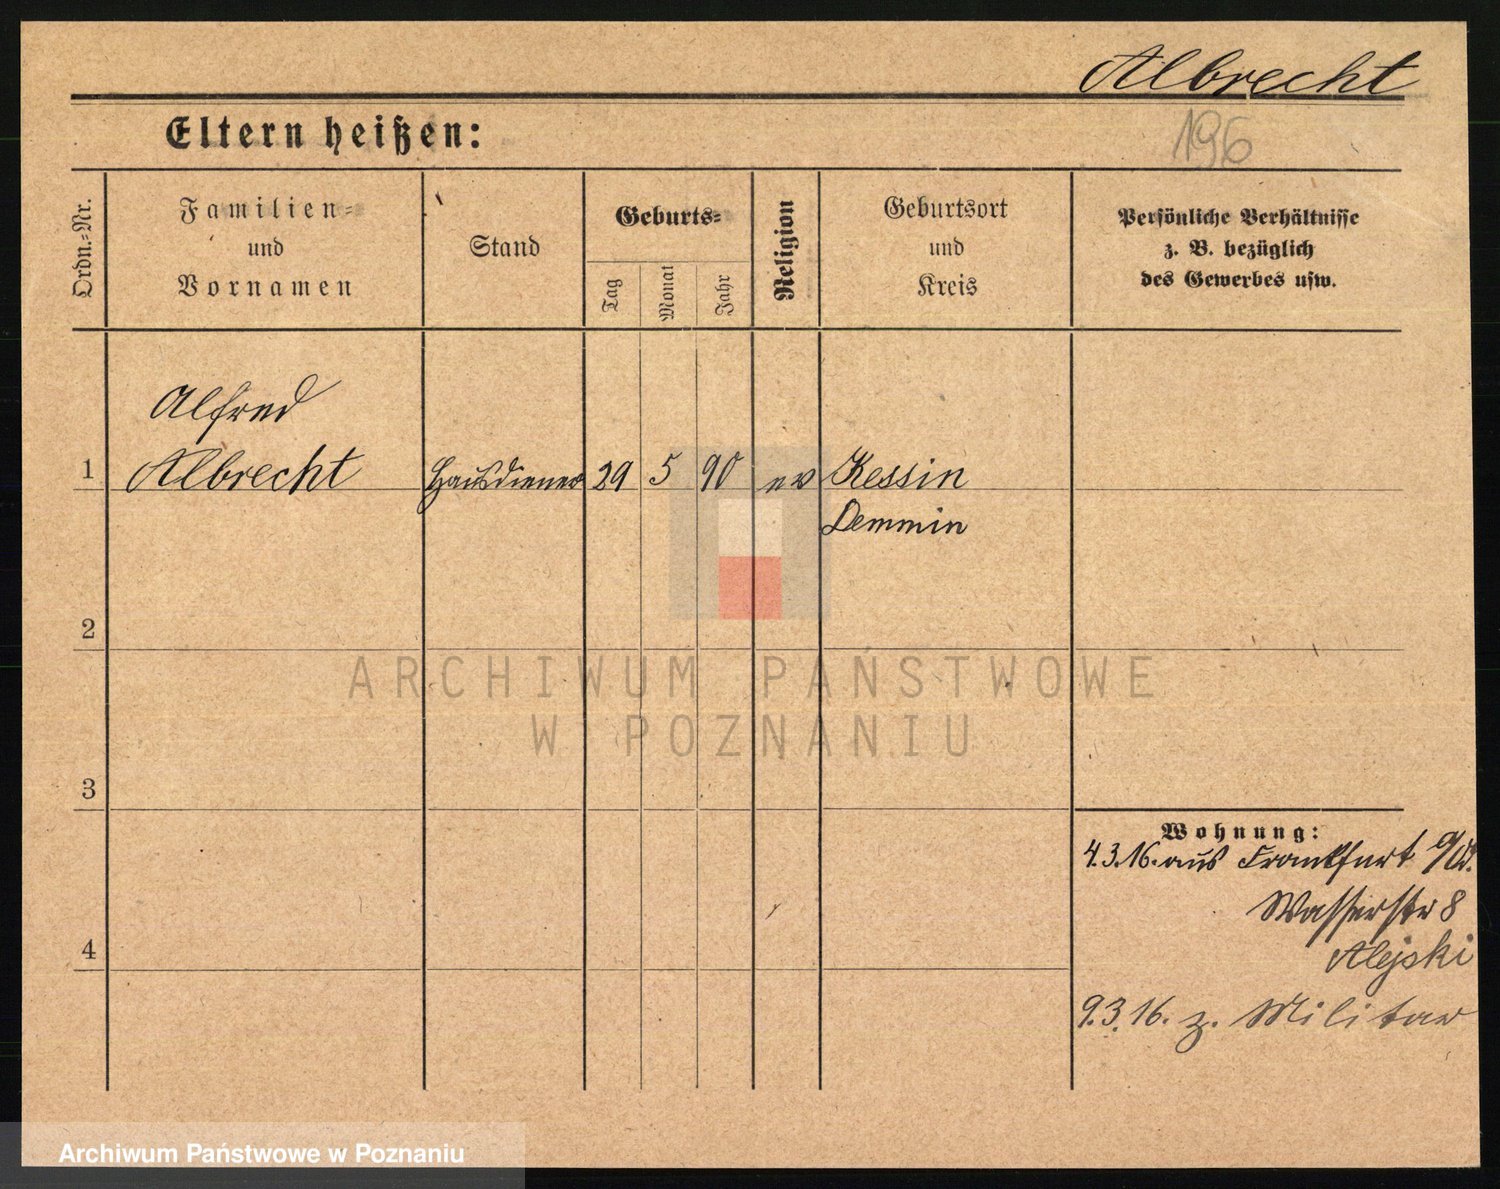 Albrecht
Eltern heißen:
196
Ordn.-Nr.
Familien-
und
Vornamen
Stand
Geburts-
Tag
Monat
Jahr
Religion
Geburtsort
und
Kreis
Persönliche Verhältnisse
z. B. bezüglich
des Gewerbes usw.
Alfred
1 Albrecht Hausdiener 29 5 90 ev Kessin
Demmin
2
ARCHIWUM PAŃSTWOWE
W POZNANIU
3
Wohnung:
4.3.16. aus Frankfurt a/O.
Wasserstr 8
4
Alejski
9.3.16. z. Militär
Archiwum Państwowe w Poznaniu